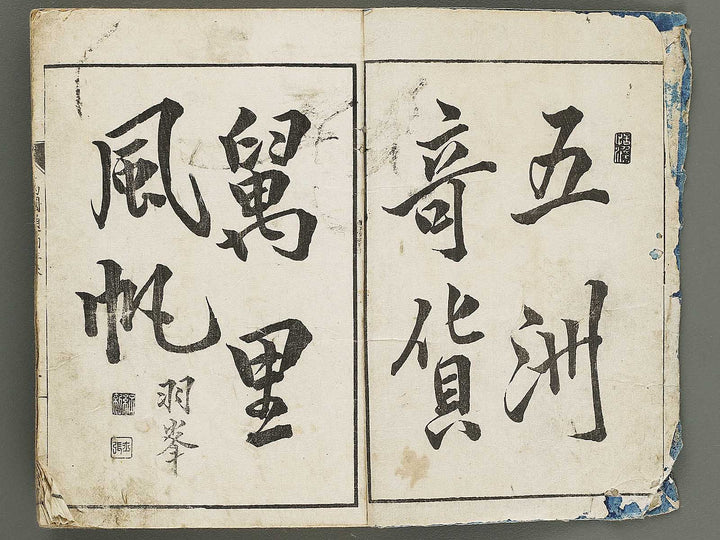 五洲
竒貨
萬里
風帆
羽峯